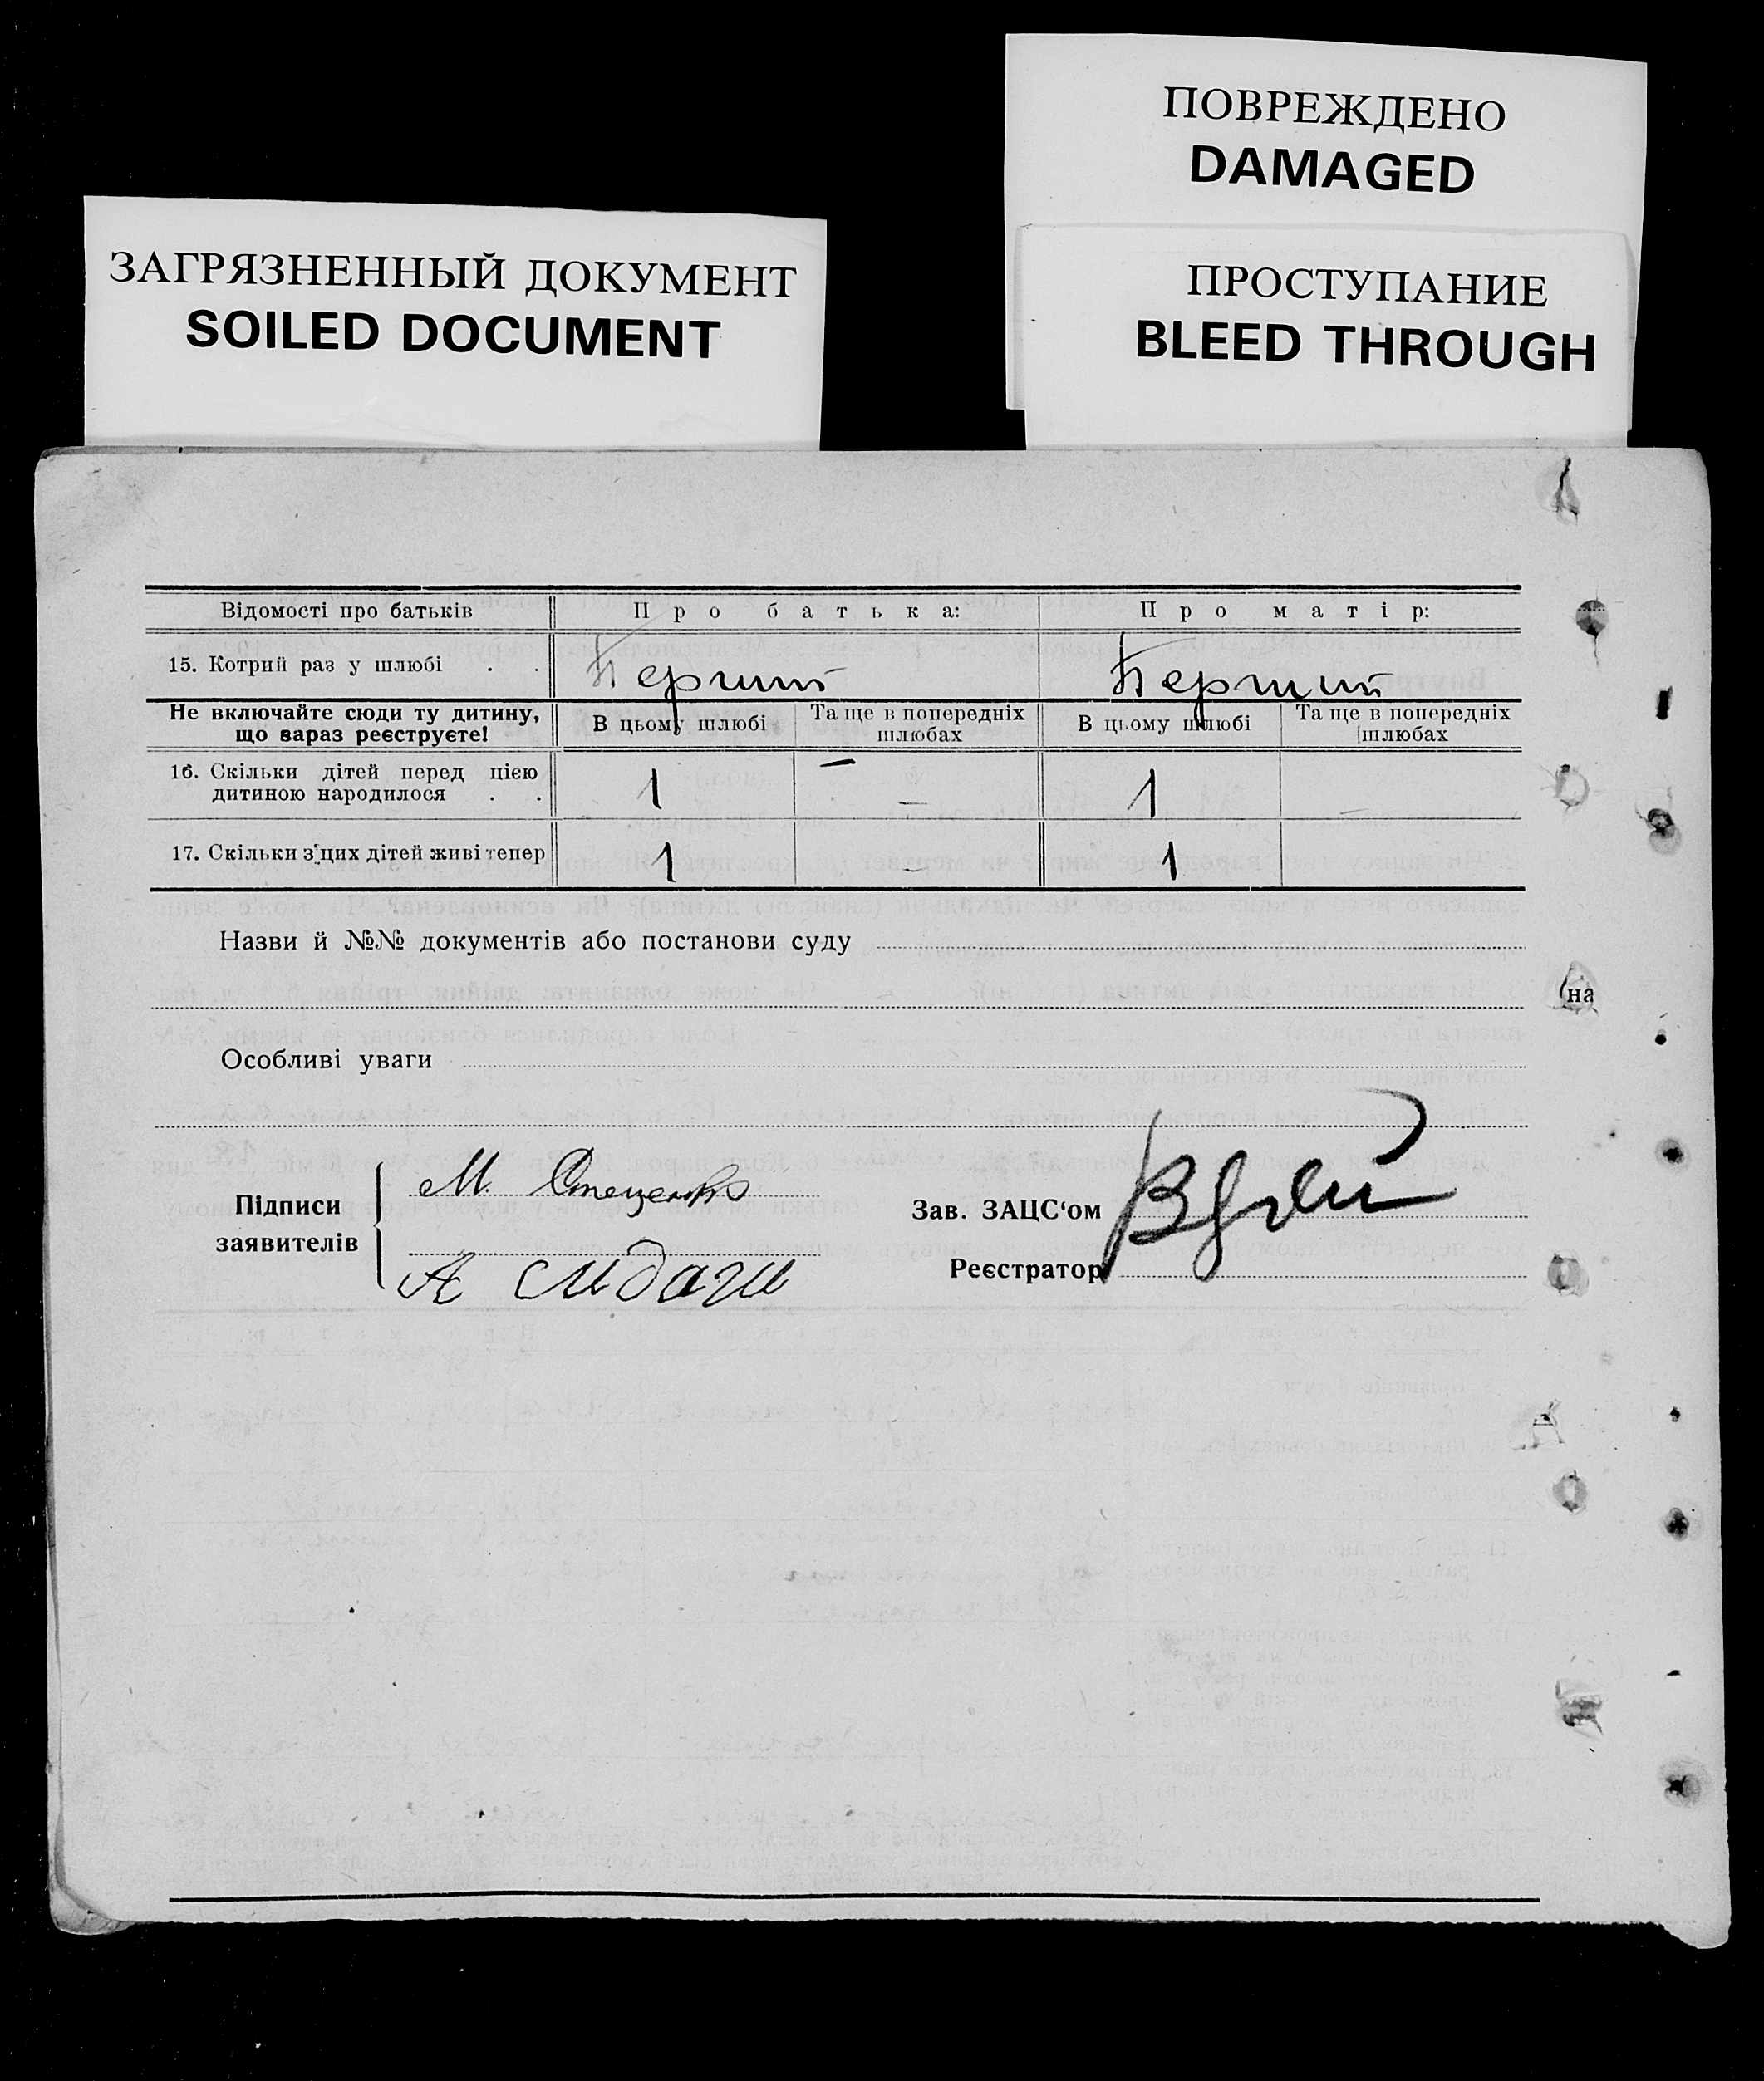 ПОВРЕЖДЕНО
DAMAGED
ЗАГРЯЗНЕННЫЙ ДОКУМЕНТ
SOILED DOCUMENT
ПРОСТУПАНИЕ
BLEED THROUGH
Відомості про батьків Про батька: Про матір:
15. Котрий раз у шлюбі . . Перший Перший
Не включайте сюди ту дитину, що вараз реєструєте! В цьому шлюбі Та ще в попередніх шлюбах В цьому шлюбі Та ще в попередніх шлюбах
16. Скільки дітей перед цією дитиною народилося . . 1 — 1 —
17. Скільки з'цих дітей живі тепер 1 — 1
Назви й №№ документів або постанови суду
на
Особливі уваги
Підписи заявителів
М. Стеценко
А
Зав. ЗАЦС‘ом
Реєстратор